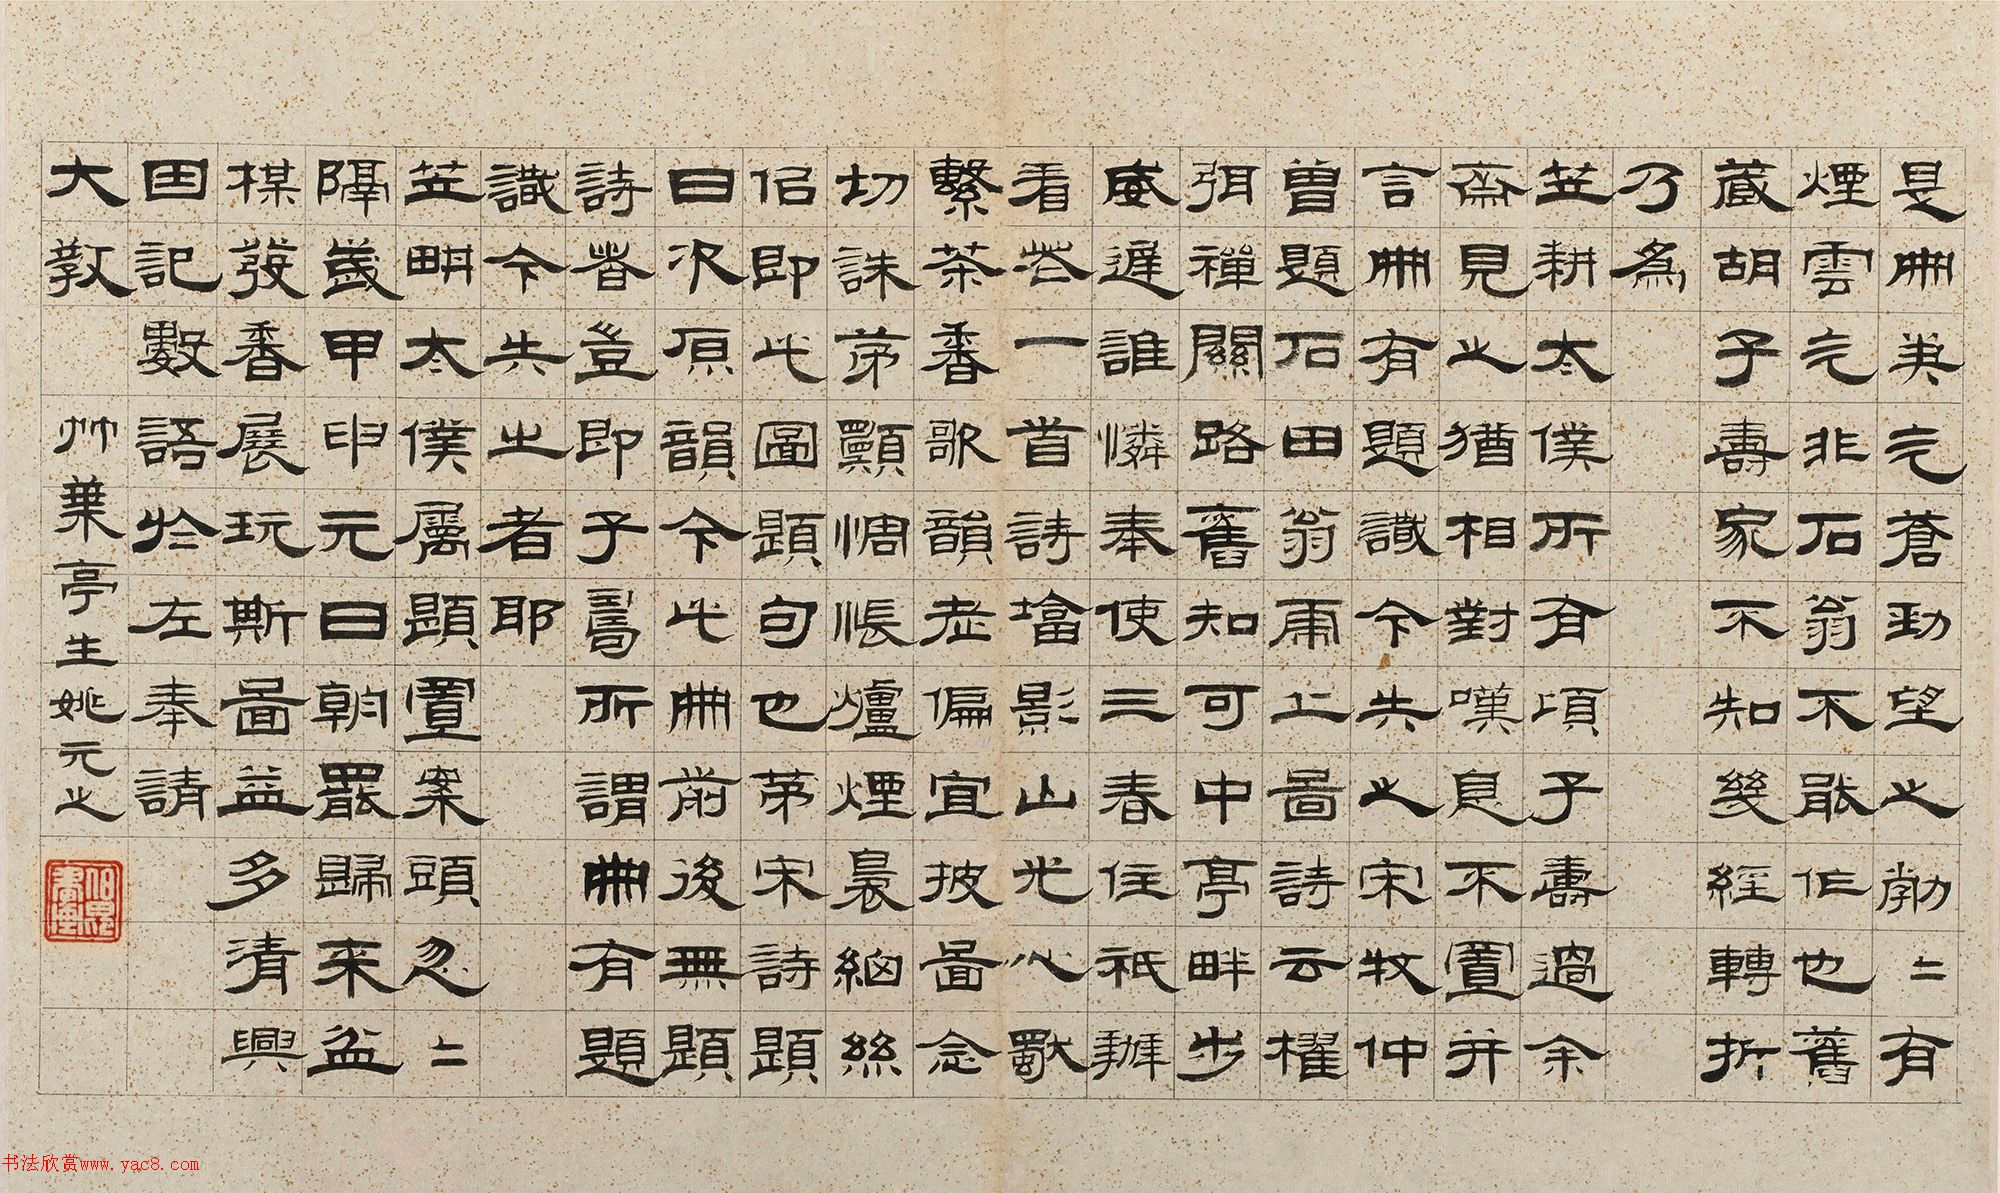 是冊英气蒼勁望之勃=有
煙雲气非石翁不能作也舊
藏胡子壽家不知幾經轉折
乃為
笠耕太僕所有項子壽過余
齋見之猶相對嘆息不置并
言冊有題識今共之宋牧仲
曾題石田翁雨上啚詩云櫂
弭禪關路舊知可中亭畔步
威遲誰憐奉使三春住祇辦
看花一首詩墖影山光心歇
繫茶香歌韻老偏宜披啚念
切誅茆顚惆悵爐煙裊細絲
侣即此圖題句也第宋詩題
曰次原韻今此冊前後無題
詩者豈即子壽所謂冊有題
識今失之者耶
笠畊太僕屬題置案頭忽=
隔歲甲申元日朝罷歸来盆
楳發香展玩斯啚益多清興
因記數語於左奉請
大教 竹葉亭生姚元之
书法欣赏www.yac8.com